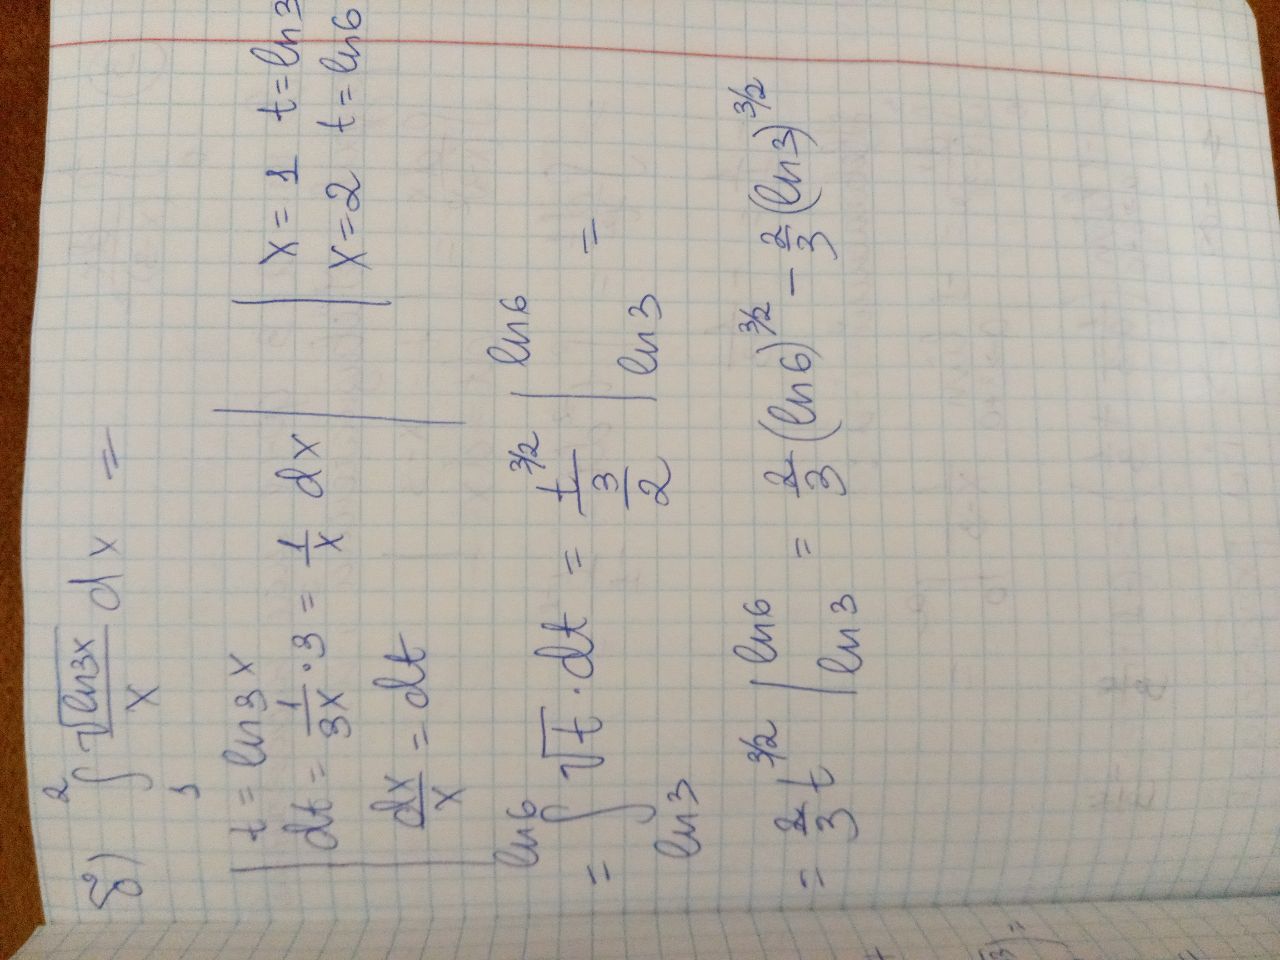 б) ∫₁² √(ln3x)/x dx =
t = ln3x
dt = 1/3x · 3 = 1/x dx
dx/x = dt
x = 1 t = ln3
x = 2 t = ln6
= ∫_{ln3}^{ln6} √t · dt = t^{3/2}/(3/2) |_{ln3}^{ln6} =
= 2/3 t^{3/2} |_{ln3}^{ln6} = 2/3 (ln6)^{3/2} − 2/3 (ln3)^{3/2}